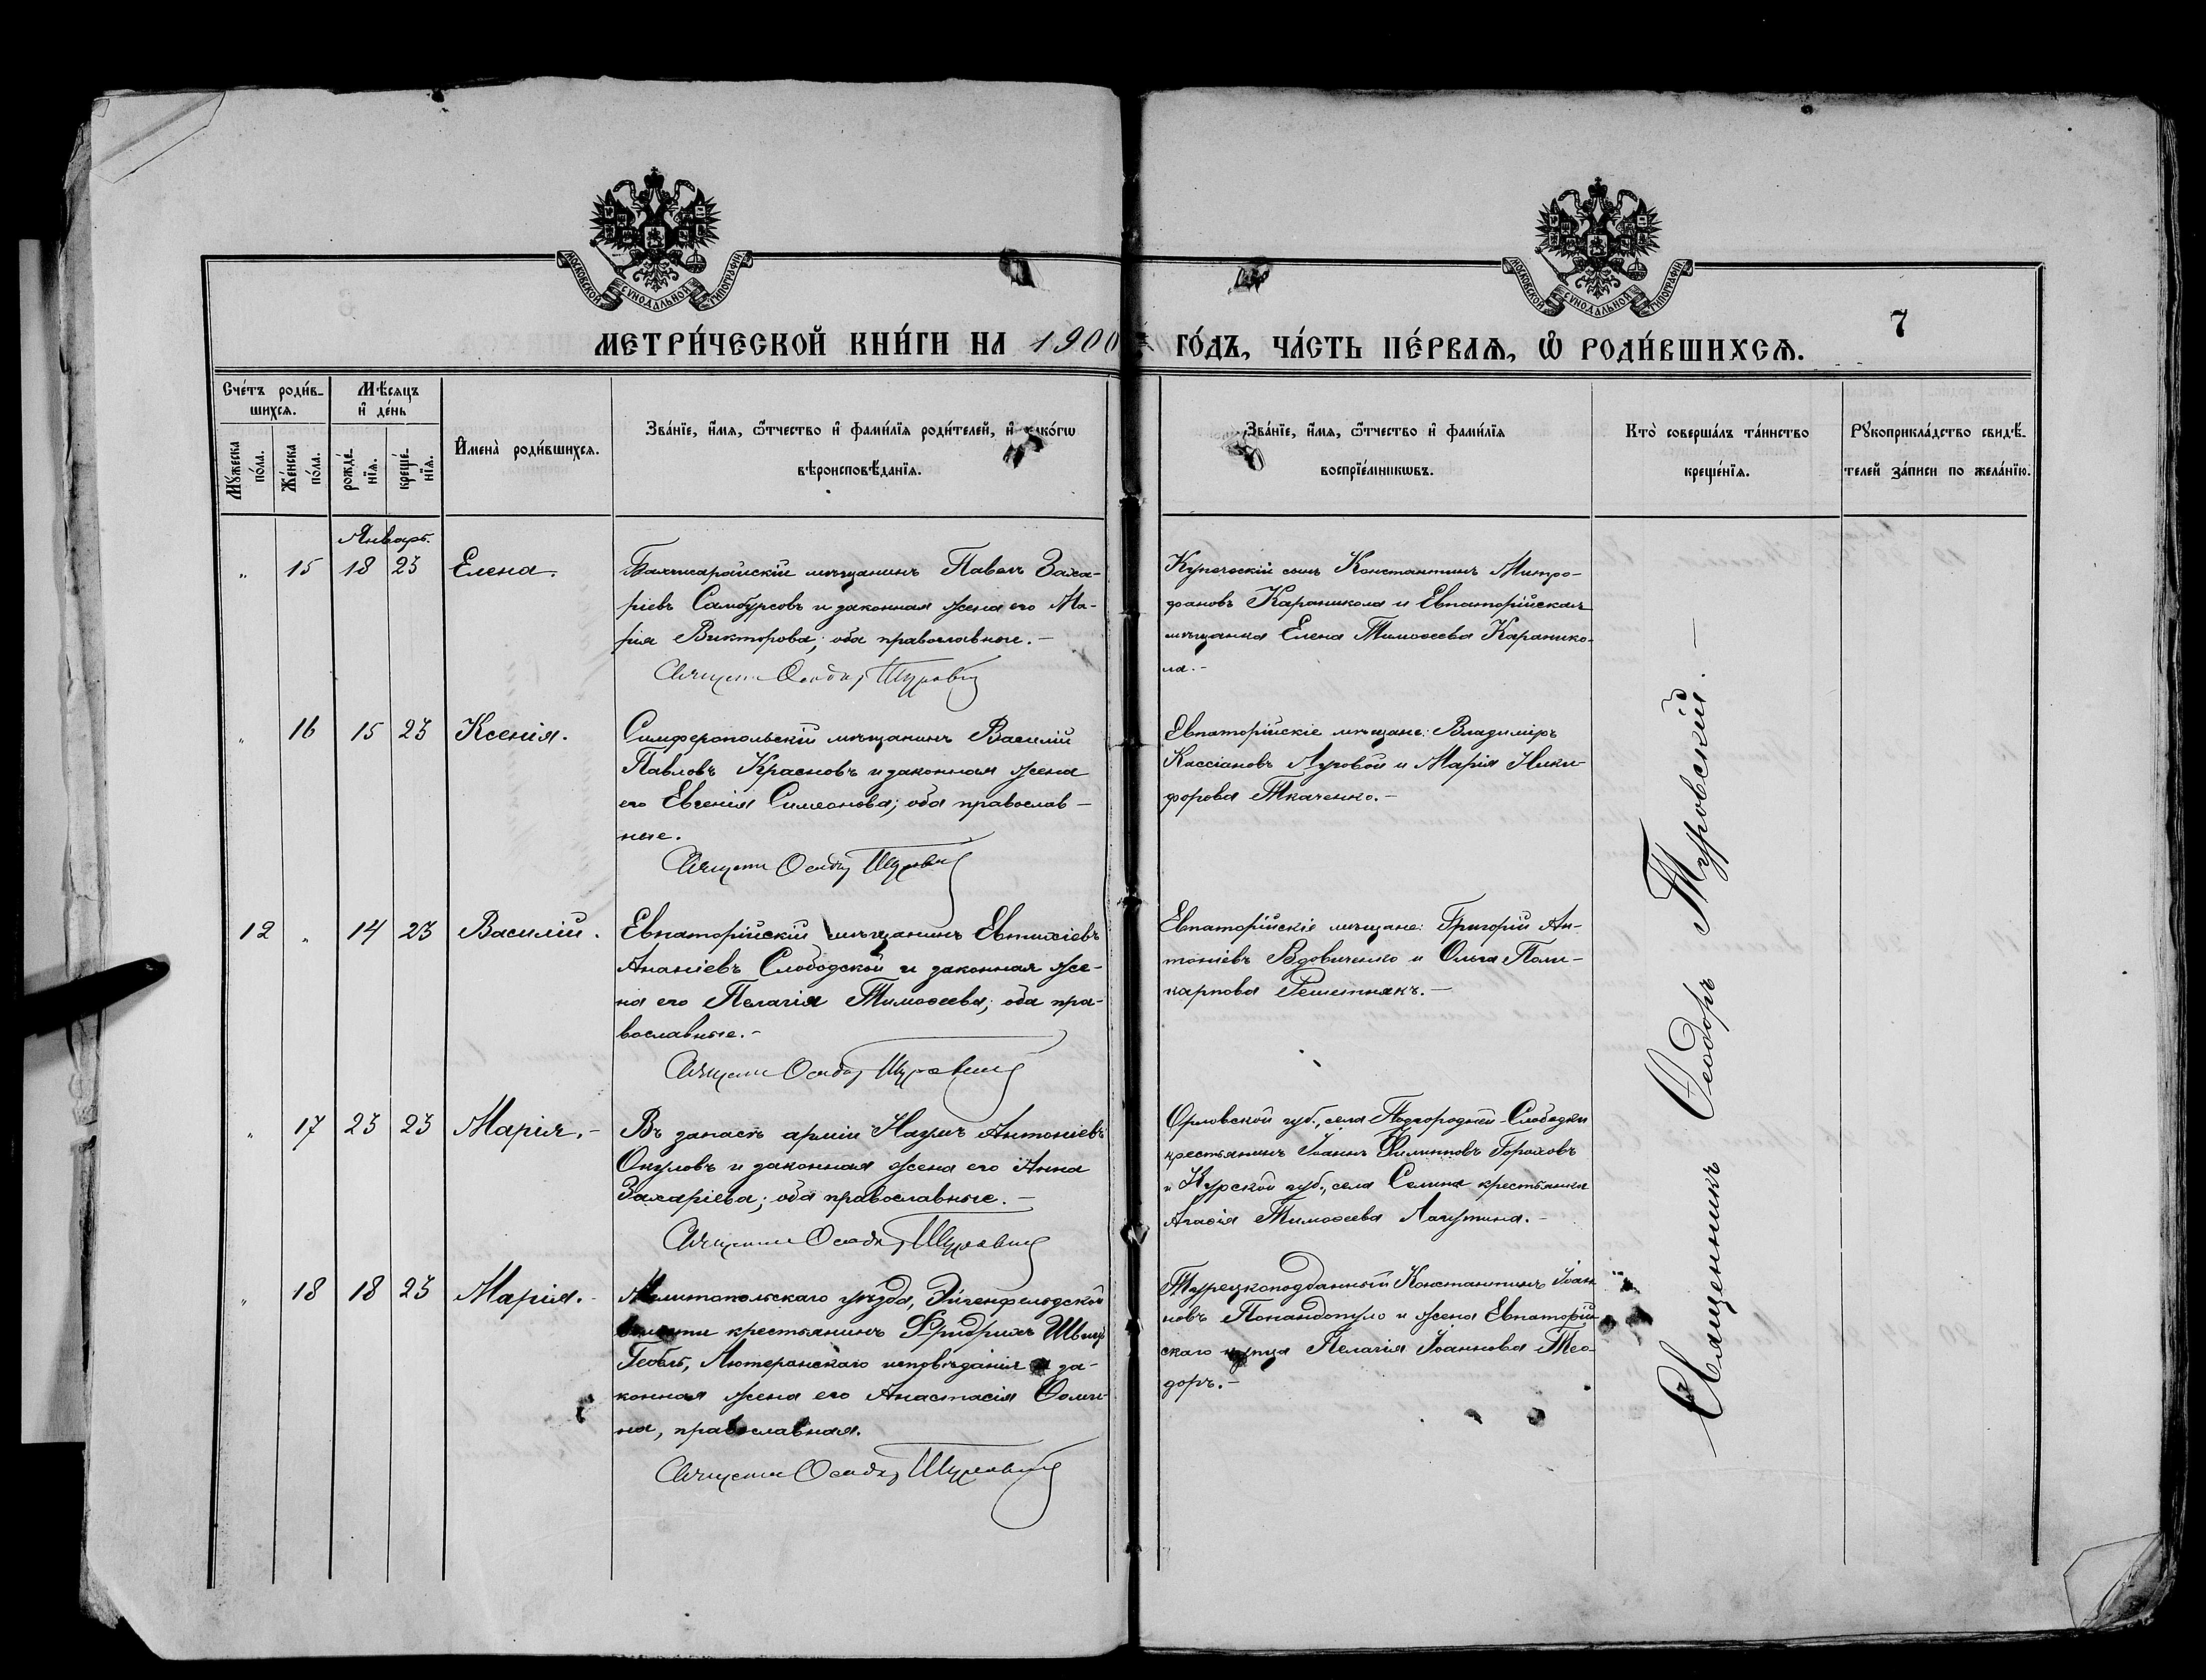 МОСКОВСКОЙ СУНОДАЛЬНОЙ ТИПОГРАФІИ
МОСКОВСКОЙ СУНОДАЛЬНОЙ ТИПОГРАФІИ
7
МЕТРИ́ЧЕСКОЙ КНИ́ГИ НА 1900 ГО́ДЪ, ЧА́СТЬ ПЕ́РВАѦ, Ѽ РОДИ́ВШИХСѦ.
Сче́тъ роди́в-
шихсѧ.
Мꙋ́жеска по́ла.
Же́нска по́ла.
Мѣ́сѧцъ
и҆ де́нь
рожде́-нїѧ.
креще́-нїѧ.
И҆мена̀ роди́вшихсѧ.
Зва́нїе, и҆́мѧ, ѻ҆́тчество и҆ фами́лїѧ роди́телей, и҆ како́гѡ
вѣроисповѣ́данїѧ.
Зва́нїе, и҆́мѧ, ѻ҆́тчество и҆ фами́лїѧ
воспрїе́мникѡвъ.
Кто̀ соверша́лъ та́инство
креще́нїѧ.
Рꙋкоприкла́дство свидѣ́-
телей за́писи по жела́нїю.
Январь.
" 15 18 23 Елена.
Бахчисарайскій мѣщанинъ Павелъ Заха-
ріевъ Самбурсовъ и законная жена его Ма-
рія Викторова; оба православные.-
Купеческій сынъ Константинъ Митро-
фановъ Караникола и Евпаторійская
мѣщанка Елена Тимоѳеева Каранико-
ла.-
" 16 15 23 Ксенія.
Симферопольскій мѣщанинъ Василій
Павловъ Красновъ и законная жена
его Евгенія Симеонова; оба православ-
ные.
Евпаторійскіе мѣщане: Владиміръ
Кассіановъ Луговой и Марія Ники-
форова Ткаченко.-
12 " 14 23 Василій.
Евпаторійскій мѣщанинъ Евтихіевъ
Ананіевъ Слободской и законная же-
на его Пелагія Тимоѳеева; оба пра-
вославные.-
Евпаторійскіе мѣщане: Григорій Ан-
тоніевъ Вдовиченко и Ольга Поли-
карпова Решетнякъ.-
" 17 23 23 Марія.-
Въ запасѣ арміи Наумъ Антоніевъ
Окуловъ и законная жена его Анна
Захаріева; оба православные.-
Орловской губ., села Подгородней-Слободки
крестьянинъ Іоаннъ Филипповъ Гороховъ
и Курской губ., села Селина крестьянка
Агаѳія Тимоѳеева Лагутина.-
" 18 18 23 Марія.-
Мелитопольскаго уѣзда, Эйгенфельдской
волости крестьянинъ Фридрихъ
Гебель, Лютеранскаго исповѣданія и за-
конная жена его Анастасія Ѳоми-
на, православная.
Турецкоподданный Константинъ Іоан-
новъ Попандопуло и жена Евпаторій-
скаго купца Пелагія Іоаннова Тео-
доръ.-
Священникъ Ѳеодоръ Туровскій.-